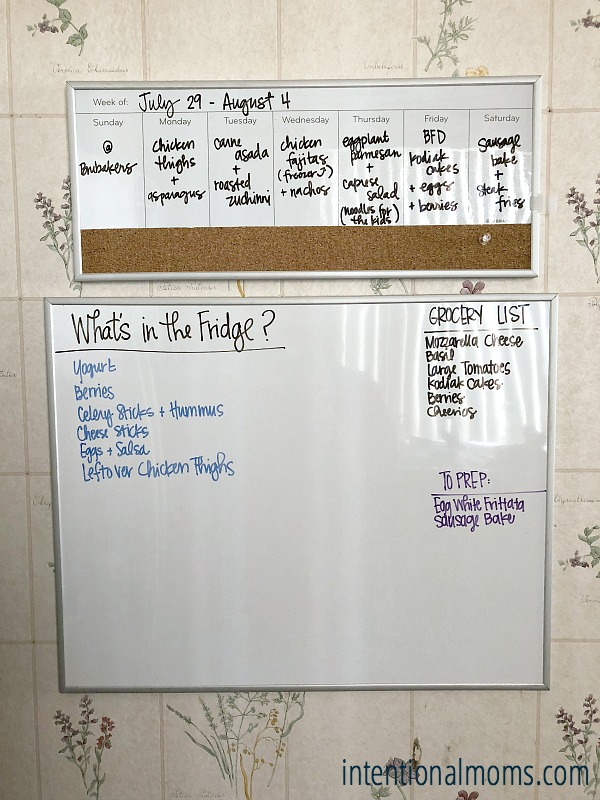 Week of: July 29 - August 4
Sunday
@
Brubakers
Monday
chicken
thighs
+
asparagus
Tuesday
carne
asada
+
roasted
zuchinni
Wednesday
chicken
fajitas
(freezer?)
+ nachos
Thursday
eggplant
parmesan
+
caprese
salad
(noodles for
the kids)
Friday
BFD
Kodiak
cakes
+ eggs
+ berries
Saturday
sausage
bake
+
steak
fries
What's in the Fridge?
Yogurt
Berries
Celery Sticks + Hummus
Cheese Sticks
Eggs + Salsa
Leftover Chicken Thighs
GROCERY LIST
Mozzarella Cheese
Basil
Large Tomatoes
Kodiak Cakes
Berries
Cheerios
TO PREP:
Egg White Frittata
Sausage Bake
intentionalmoms.com